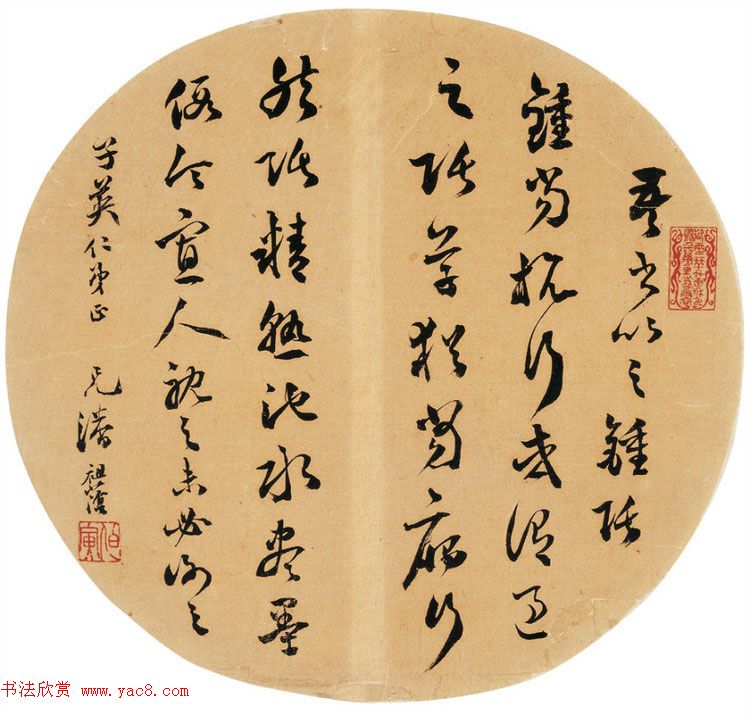 吾書比之鍾張
鍾當抗行或謂過
之張草猶當雁行
然張精熟池水盡墨
假令寡人耽之未必謝之
子英仁弟正 兄潘祖蔭
伯寅
书法欣赏 www.yac8.com